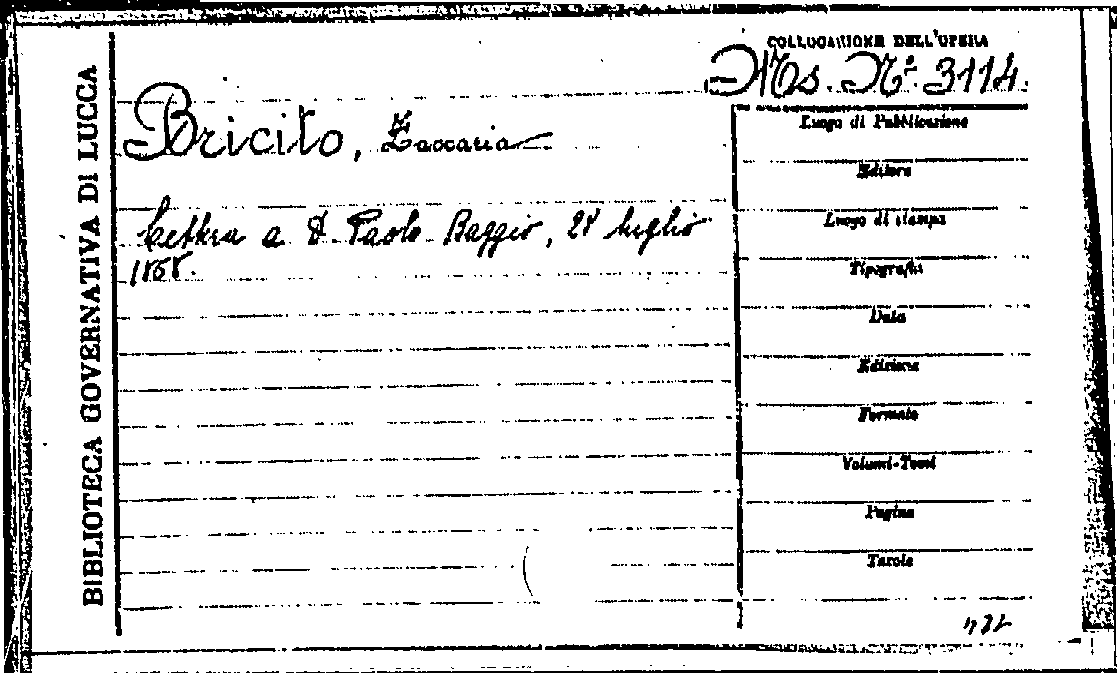 BIBLIOTECA GOVERNATIVA DI LUCCA
COLLOCAZIONE DELL'OPERA
Ms. Nº. 3114.
Bricito, Zaccaria
Lettera a D. Paolo Baggio, luglio
Luogo di Pubblicazione
Editore
Luogo di stampa
Tipografia
Data
Edizione
Formato
Volumi-Tomi
Pagine
Tavole